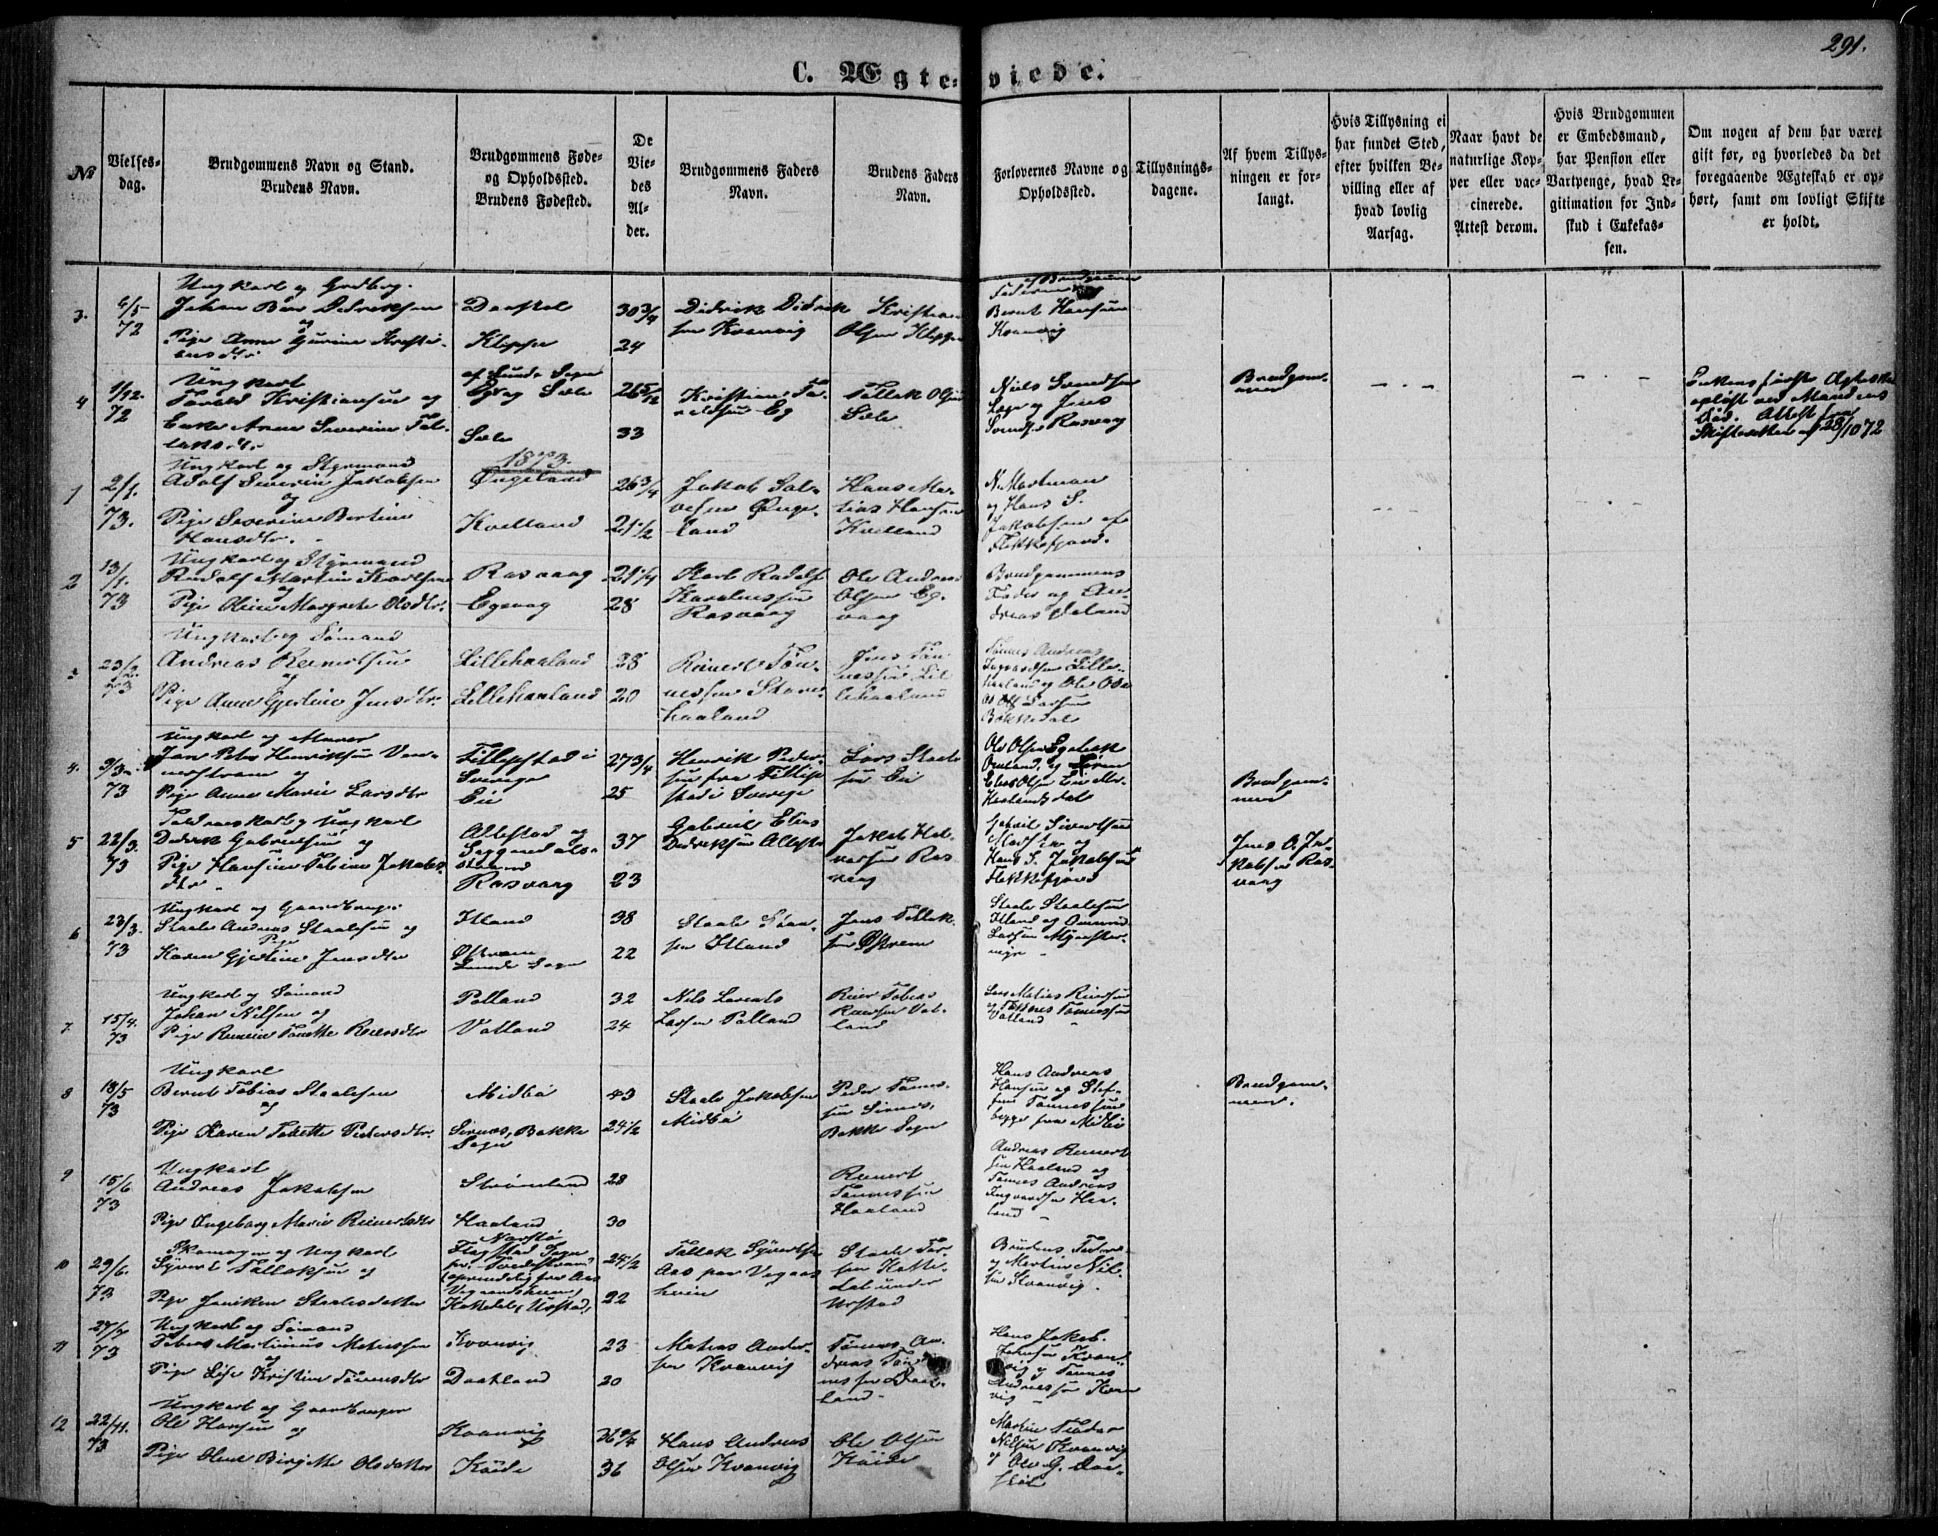 291.
C. Ægteviede.
№
Vielsesdag.
Brudgommens Navn og Stand.
Brudens Navn.
Brudgommens Føde-
og Opholdssted.
Brudens Fødested.
De
Vie-
des
Al-
der.
Brudgommens Faders
Navn.
Brudens Faders
Navn.
Forlovernes Navne og
Opholdssted.
Tillysnings-
dagene.
Af hvem Tillys-
ningen er for-
langt.
Hvis Tillysning ei
har fundet Sted,
efter hvilken Be-
villing eller af
hvad lovlig
Aarsag.
Naar havt de
naturlige Kop-
per eller vac-
cinerede.
Attest derom.
Hvis Brudgommen
er Embedsmand,
har Pension eller
Vartpenge, hvad Le-
gitimation for Ind-
skud i Enkekas-
sen.
Om nogen af dem har været
gift før, og hvorledes da det
foregaaende Ægteskab er op-
hørt, samt om lovligt Skifte
er holdt.
3.
72
Ungkarl og
Johan Didriksen
og
Pige Anne Gurine Kristi-
ansdtr
Klippe
30 3/4
24
Didrik Didrik-
sen Kvanvig
Kristian
Olsen Klippe
Berent Hansen
Kvanvig
4
1/12
72
Ungkarl
Torald Kristiansen og
Enke Anne Severine Tol-
laksdtr
af Lunde Sogn
Eg og Sæle
Sæle
26 5/12
33
Kristian To-
raldsen Eg
Tollak Olsen
Sæle
Niels Svendsen
og Jens
Svendsen Rasvaag
Brudgom-
men
Enkens første Ægteskab
opløst ved Mandens
Død. Attest fra
Skifteretten af 28/10 72
1873.
1
2/1.
73.
Ungkarl og Styrmand
Adolf Severin Jakobsen
og
Pige Severine Bertine
Hansdtr.
Øigeland
Kvelland
26 3/4
21 1/2
Jakob Sal-
vesen Øige-
land
Hans Ma-
tias Hansen
Kvelland
N. Mortman
og Hans S.
Jakobsen af
Flekkefjord.
2
13/1.
73
Ungkarl og Styrmand
Rudolf Martin Karlsen
og
Pige Oline Margrete Olsdtr.
Rasvaag
Egevaag
21 1/4
28
Karl Rudolf
Karolussen
Rasvaag
Ole Andreas
Olsen Eg-
vaag
Brudgommens
Fader og An-
dreas
3
23/2.
73
Ungkarl og Sømand
Andreas Reinertsen
og
Pige Anne Gjertine Jensdtr.
Lillehaaland
Lillehaaland
28
20
Reinert Tøn-
nessen Store-
haaland
Jens Tøn-
nessen Lil-
lehaaland
Tønnes Andreas
Ingvardsen Lille-
haaland og Ole
Bokkedal
4.
9/3.
73
Ungkarl og Murer
Jan Peter Henriksen Ven-
nerstrøm og
Pige Anne Marie Larsdtr
Fillipstad i
Sverige
Eie
27 3/4
25
Henrik Peder-
sen fra Fillip-
stad i Sverige
Lars Staale-
sen Eie
Ole Olsen Egebak
Brudgom-
men
5
22/3.
73
Didrik Gabrielsen og
Pige Hansine Tobine Jakobs-
dtr
Allestad og
Rasvaag
37
23
Gabriel Elias
Didriksen Allestad
Jakob Hal-
vorsen Ras-
vaag
Gabriel Sivertsen
og
Hans S. Jakobsen
Flekkefjord
Jens O. Ja-
kobsen Ras-
vaag
6
23/3.
73
Ungkarl og Gaardbruger
Staale Andreas Staalesen og
Pige
Karen Gjertine Jensdtr
Itland
Østrem
Lunde Sogn
38
22
Staale Tøn-
sen Itland
Jens Tollak-
sen Østrem
Staale Staalesen
Itland og Omund
Larsen Mønster-
myr
7.
15/4.
73
Ungkarl og Sømand
Johan Nilsen og
Pige Reineie Tonette Reiersdtr
Polland
Vatland
32
24
Nils Lorents
Larsen Polland
Reier Tobias
Reiersen Vat-
land
Lars Matias Reiersen
og Tønnes Tønnessen
Vatland
8
18/5
73
Ungkarl
Bernt Tobias Staalesen
og
Pige Karen Tobette Pedersdtr.
Midbø
Sirnes, Bakke
Sogn
43
24 1/2
Staale Jakobsen
Midbø
Peder Tønnes-
sen Sirnes,
Bakke Sogn
Hans Andreas
Hansen og Stef-
fen Tønnessen
begge fra Midbø
Brudgom-
men.
9
15/6
73
Ungkarl
Andreas Jakobsen
Pige Ingeborg Marie Reinertsdtr
Strømland
Haaland
28
30
Reinert
Tønnessen
Haaland
Andreas Reinert-
sen Haaland og
Tønnes Andreas
Ingvardsen Haa-
land
10
29/6.
73
Skomager og Ungkarl
Syvert Tollaksen og
Pige Janiken Staalesdatter
Narestø
Flagstad Sogn
Tvedestrand
oprindelig fra Aas
Vegaardsheien,
Kattedal, Urstad,
24 1/2
22
Tollak Syvertsen
Aas paa Vegaards-
heien
Staale
Katte-
dal under
Urstad
Brudens Fader
og Martin Nil-
sen Kvanvig.
11
27/7
73
Ungkarl og Sømand
Tobias Martinius Matiassen
og
Pige Lise Kristine Tønnesdtr
Kvanvig
Daatland
23
20
Matias Ander-
sen Kvanvig
Tønnes An-
dreas Tøn-
nessen Daat-
land
Hans Jakob
Johnsen Kvan-
vig og Tønnes
Andreassen Kvan-
vig
12
22/11.
73
Ungkarl og Gaardbruger
Ole Hansen og
Pige Oline Birgitte Olsdatter
Kvanvig
Köide
36 3/4
36
Hans Andreas
Olsen Kvanvig
Ole Olsen
Köide
Martin Teodor
Nilsen Kvanvig
og Ole G.